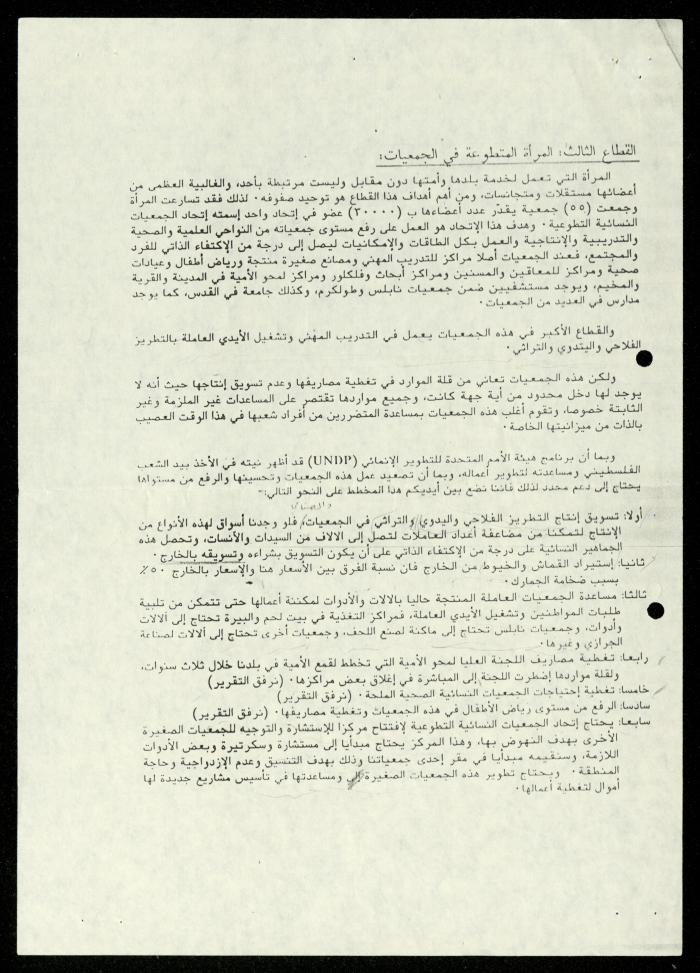 القطاع الثالث: المرأة المتطوعة في الجمعيات:
المرأة التي تعمل لخدمة بلدها وأمتها دون مقابل وليست مرتبطة بأحد، والغالبية العظمى من
أعضائها مستقلات ومتجانسات، ومن أهم أهداف هذا القطاع هو توحيد صفوفه. لذلك فقد تسارعت المرأة
وجمعت (٥٥) جمعية يقدّر عدد أعضاءها ب (٣٠٠٠٠) عضو في إتحاد واحد إسمته إتحاد الجمعيات
النسائية التطوعية. وهدف هذا الإتحاد هو العمل على رفع مستوى جمعياته من النواحي العلمية والصحية
والتدريبية والإنتاجية والعمل بكل الطاقات والإمكانيات ليصل إلى درجة من الإكتفاء الذاتي للفرد
والمجتمع، فعند الجمعيات أصلا مراكز للتدريب المهني ومصانع صغيرة منتجة ورياض أطفال وعيادات
صحية ومراكز للمعاقين والمسنين ومراكز أبحاث وفلكلور ومراكز لمحو الأمية في المدينة والقرية
والمخيم، ويوجد مستشفيين ضمن جمعيات نابلس وطولكرم، وكذلك جامعة في القدس، كما يوجد
مدارس في العديد من الجمعيات.
والقطاع الأكبر في هذه الجمعيات يعمل في التدريب المهني وتشغيل الأيدي العاملة بالتطريز
الفلاحي واليتدوي والتراثي.
ولكن هذه الجمعيات تعاني من قلة الموارد في تغطية مصاريفها وعدم تسويق إنتاجها حيث أنه لا
يوجد لها دخل محدود من أية جهة كانت، وجميع مواردها تقتصر على المساعدات غير الملزمة وغير
الثابتة خصوصا، وتقوم أغلب هذه الجمعيات بمساعدة المتضررين من أفراد شعبها في هذا الوقت العصيب
بالذات من ميزانيتها الخاصة.
وبما أن برنامج هيئة الأمم المتحدة للتطوير الإنمائي (UNDP) قد أظهر نيته في الأخذ بيد الشعب
الفلسطيني ومساعدته لتطوير أعماله، وبما أن تصعيد عمل هذه الجمعيات وتحسينها والرفع من مستواها
يحتاج إلى دعم محدد لذلك فاننا نضع بين أيديكم هذا المخطط على النحو التالي:-
أولا: تسويق إنتاج التطريز الفلاحي واليدوي والتراثي في الجمعيات، فلو وجدنا أسواق لهذه الأنواع من
الإنتاج لتمكنا من مضاعفة أعداد العاملات لتصل إلى الالاف من السيدات والأنسات، وتحصل هذه
الجماهير النسائية على درجة من الإكتفاء الذاتي على أن يكون التسويق بشراءه وتسويقه بالخارج.
ثانيا: إستيراد القماش والخيوط من الخارج فان نسبة الفرق بين الأسعار هنا والإسعار بالخارج ٥٠٪
بسبب ضخامة الجمارك.
ثالثا: مساعدة الجمعيات العاملة المنتجة حاليا بالالات والأدوات لمكننة أعمالها حتى تتمكن من تلبية
طلبات المواطنين وتشغيل الأيدي العاملة، فمراكز التغذية في بيت لحم والبيرة تحتاج إلى الالات
وأدوات، وجمعيات نابلس تحتاج إلى ماكنة لصنع اللحف، وجمعيات أخرى تحتاج إلى ألالات لصناعة
الجرازي وغيرها.
رابعا: تغطية مصاريف اللجنة العليا لمحو الأمية التي تخطط لقمع الأمية في بلدنا خلال ثلاث سنوات،
ولقلة مواردها إضطرت اللجنة إلى المباشرة في إغلاق بعض مراكزها. (نرفق التقرير)
خامسا: تغطية إحتياجات الجمعيات النسائية الصحية الملحة. (نرفق التقرير)
سادسا: الرفع من مستوى رياض الأطفال في هذه الجمعيات وتغطية مصاريفها. (نرفق التقرير)
سابعا: يحتاج إتحاد الجمعيات النسائية التطوعية لإفتتاح مركزا للإستشارة والتوجيه للجمعيات الصغيرة
الأخرى بهدف النهوض بها، وهذا المركز يحتاج مبدأيا إلى مستشارة وسكرتيرة وبعض الأدوات
اللازمة، وسنقيمه مبدأيا في مقر إحدى جمعياتنا وذلك بهدف التنسيق وعدم الإزدواجية وحاجة
المنطقة. ويحتاج تطوير هذه الجمعيات الصغيرة إلى ومساعدتها في تأسيس مشاريع جديدة لها
أموال لتغطية أعمالها.